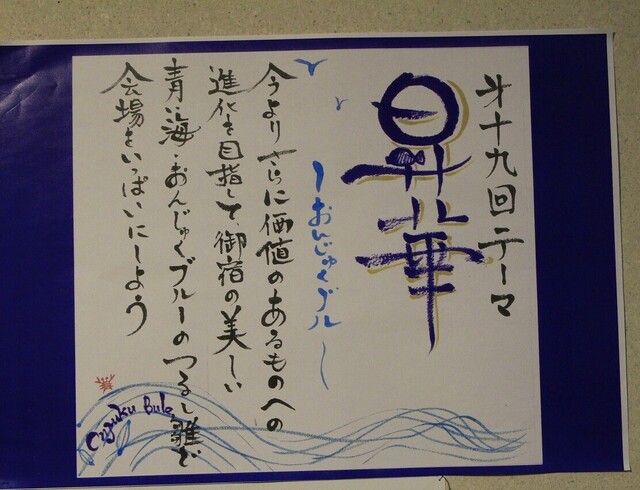 第十九回テーマ
昇華
〜おんじゅくブルー〜
今よりさらに価値のあるものへの
進化を目指して、御宿の美しい
青い海・おんじゅくブルーのつるし雛で
会場をいっぱいにしよう